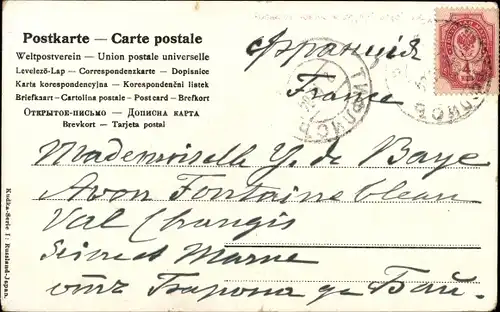 Postkarte — Carte postale
Weltpostverein — Union postale universelle
Levelező-Lap — Correspondenzkarte — Dopisnice
Karta korespondencyjna — Korespondenční listek
Briefkaart - Cartolina postale - Postcard - Brefkort
Открытое-письмо — Дописна карта
Brevkort — Tarjeta postal
Франція
France
ТИФЛИСЪ
Mademoiselle Y. de Baye
Avon Fontainebleau
Val Changis
Seine et Marne
отъ Барона де Бай.
Kodka-Serie I: Russland-Japan.